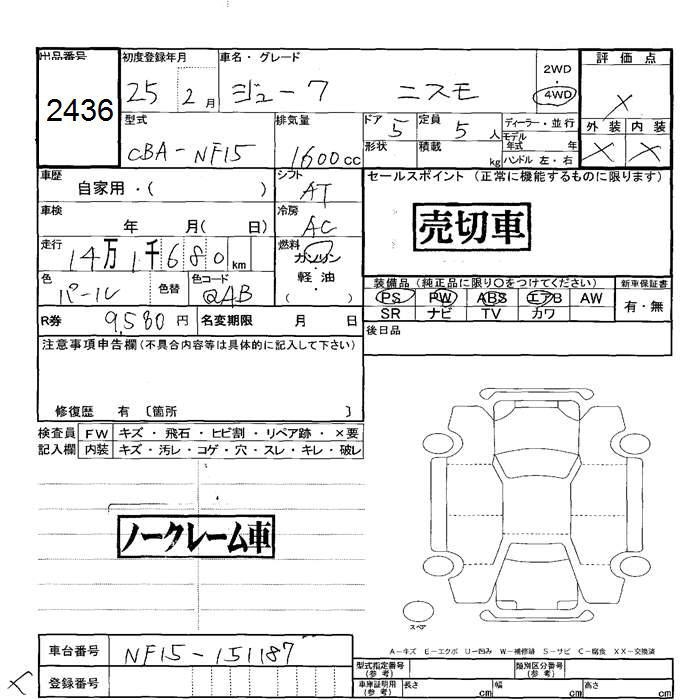 出品番号 初度登録年月 車名・グレード 評価点
2436 25 2月 ジューク ニスモ 2WD 4WD ×
型式 排気量 ドア 定員 ディーラー・並行 外装 内装
CBA-NF15 1600cc 5 5人 モデル年式 年 × ×
形状 積載 kg ハンドル 左・右
車歴 シフト セールスポイント (正常に機能するものに限ります)
自家用・( ) AT
車検 冷房 売切車
年 月( 日) AC
走行 燃料
14万1千680km ガソリン・軽油 ( )
色 色替 色コード 装備品 (純正品に限り○をつけてください) 新車保証書
パール QAB PS PW ABS エアB AW 有・無
SR ナビ TV カワ
R券 9,580円 名変期限 月 日 後日品
注意事項申告欄 (不具合内容等は具体的に記入して下さい)
修復歴 有 〔箇所 〕
検査員 FW キズ・飛石・ヒビ割・リペア跡・×要
記入欄 内装 キズ・汚レ・コゲ・穴・スレ・キレ・破レ
ノークレーム車
スペア
A-キズ E-エクボ U-凹み W-補修跡 S-サビ C-腐食 XX-交換済
車台番号 NF15-151187 型式指定番号(参考) 類別区分番号(参考)
登録番号 車庫証明用(参考) 長さ cm 幅 cm 高さ cm